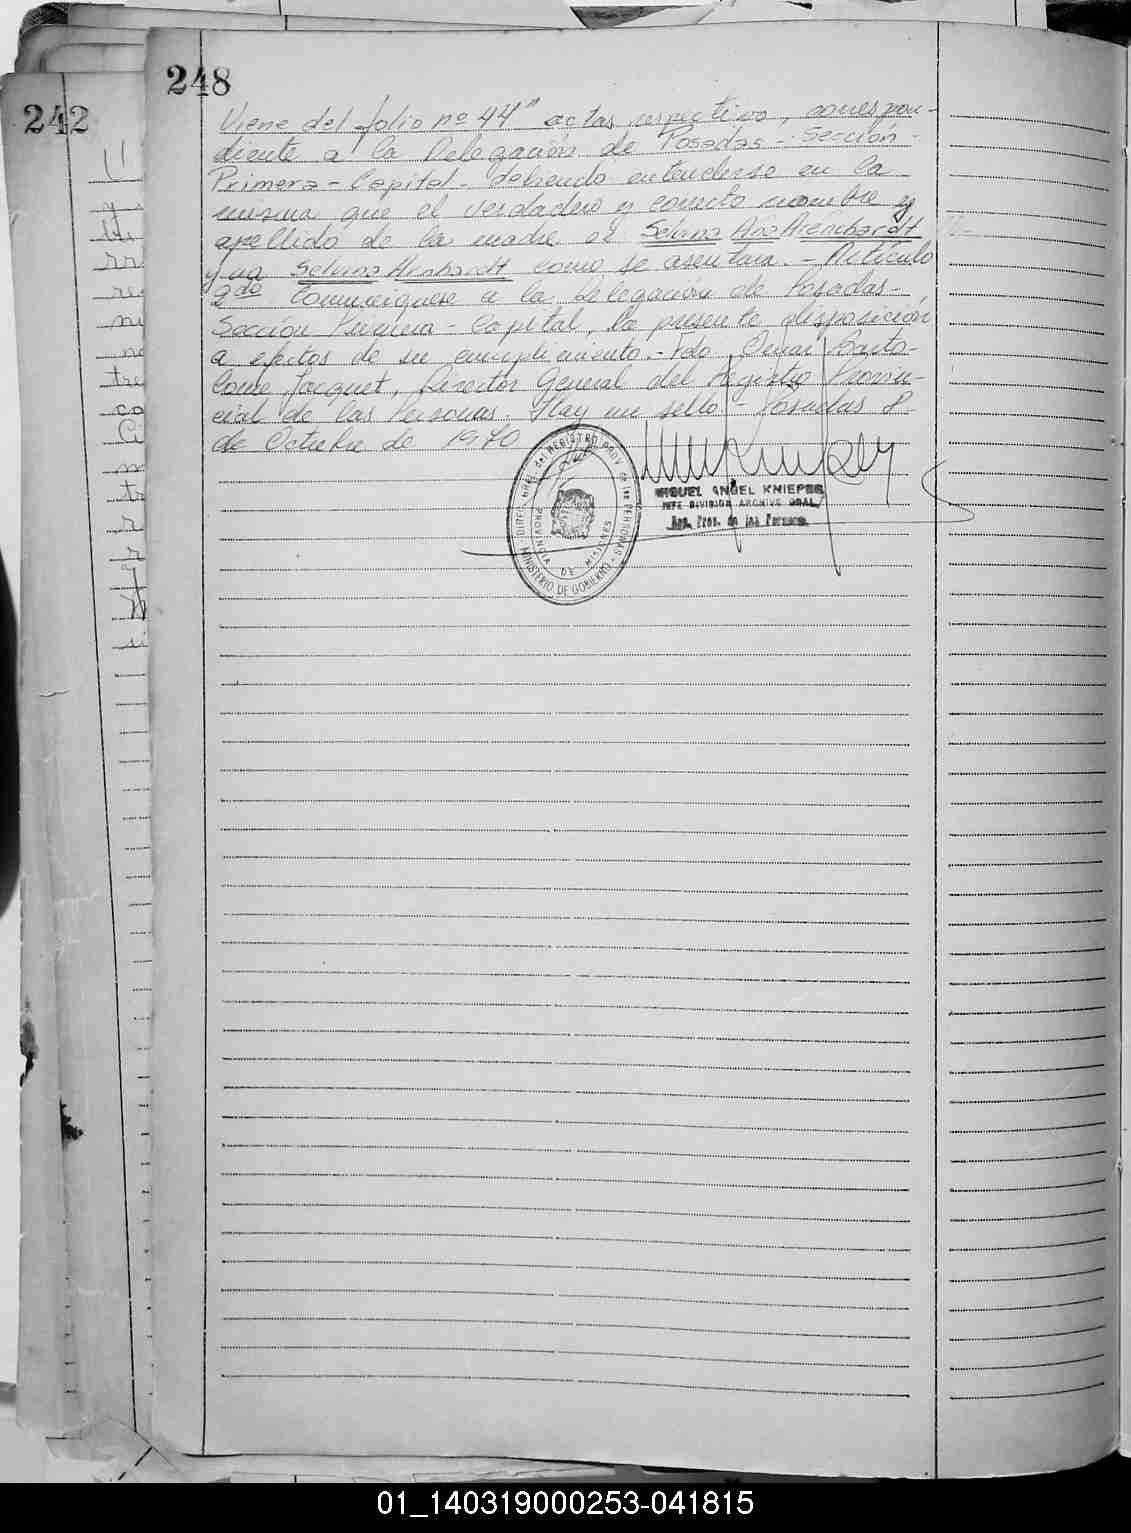 248
242
Viene del folio nº 44" actas respectivo, correspon-
diente a la Delegación de Posadas - Sección
Primera - Capital - debiendo entenderse en la
misma que el verdadero y correcto nombre y
apellido de la madre es Selma Ana Arenhardt
y no Selma Arnhardt como se asentara. - Artículo
2do Comuníquese a la Delegación de Posadas -
Sección Primera - Capital, la presente disposición
a efectos de su cumplimiento. - Fdo Omar Barto-
lome Jacquet, Director General del Registro Provin-
cial de las Personas. Hay un sello - Posadas 8
de Octubre de 1970
DIREC. GRAL. del REGISTRO PROV. de las PERSONAS
PROVINCIA DE MISIONES
MINISTERIO DE GOBIERNO
MIGUEL ANGEL KNIEPER
JEFE DIVISION ARCHIVO GRAL.
Reg. Prov. de las Personas
01_140319000253-041815